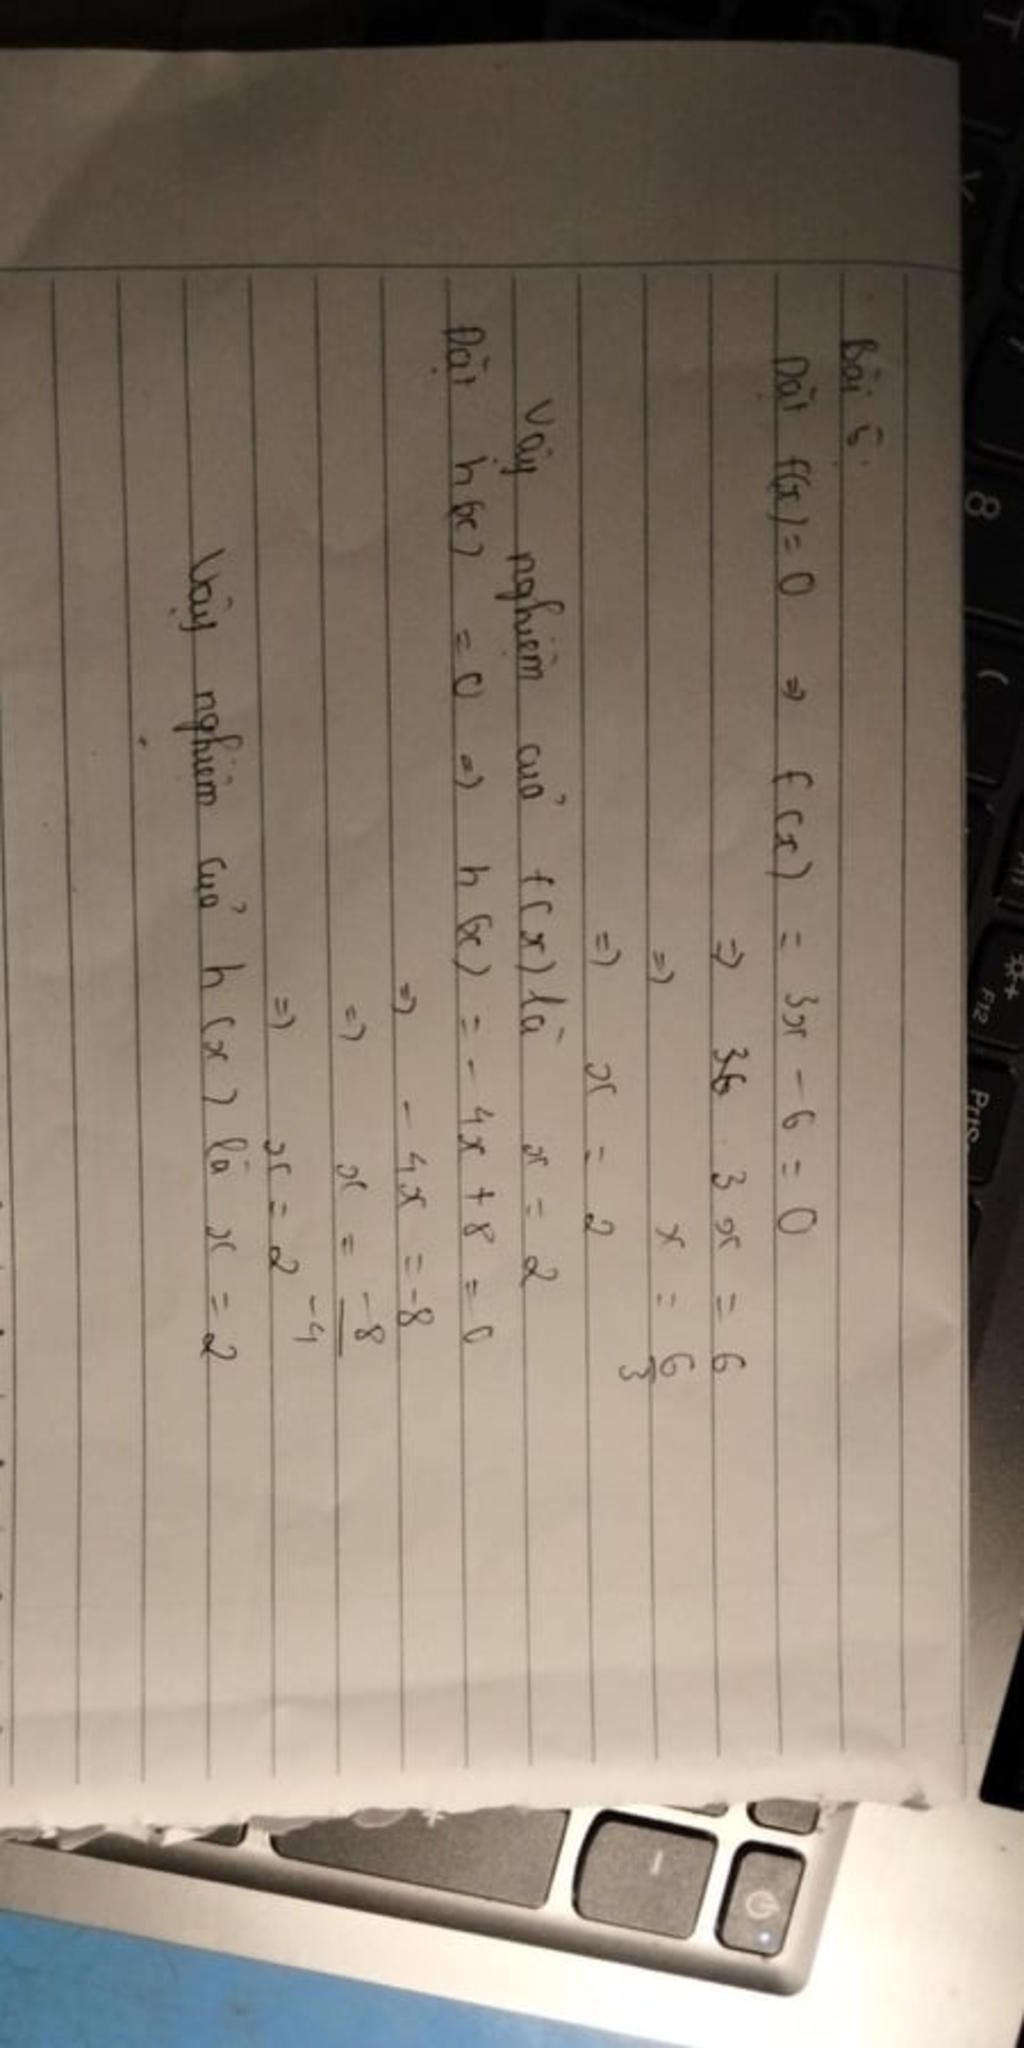 Bài 5:
Đặt f(x) = 0 => f(x) = 3x - 6 = 0
=> 3x = 6
=> x = 6/3
=> x = 2
Vậy nghiệm của f(x) là x = 2
Đặt h(x) = 0 => h(x) = - 4x + 8 = 0
=> - 4x = -8
=> x = -8/-4
=> x = 2
Vậy nghiệm của h(x) là x = 2
8
(
F12
PrtSc
-